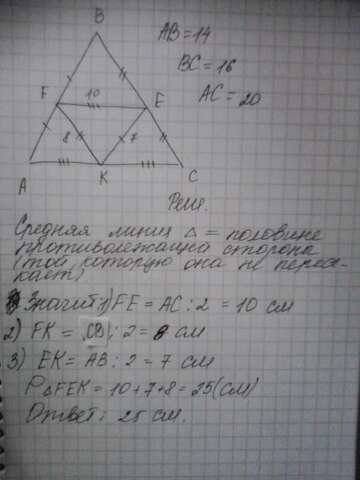 B
AB=14
BC=16
AC=20
F
10
E
8
7
A
K
C
Реш.
Средняя линия △ = половине
противолежащиа стороны
(той которую она не пересе-
кает)
Значит 1) FE = AC : 2 = 10 см
2) FK = CB : 2 = 8 см
3) EK = AB : 2 = 7 см
P△FEK = 10+7+8=25(см)
Ответ: 25 см.